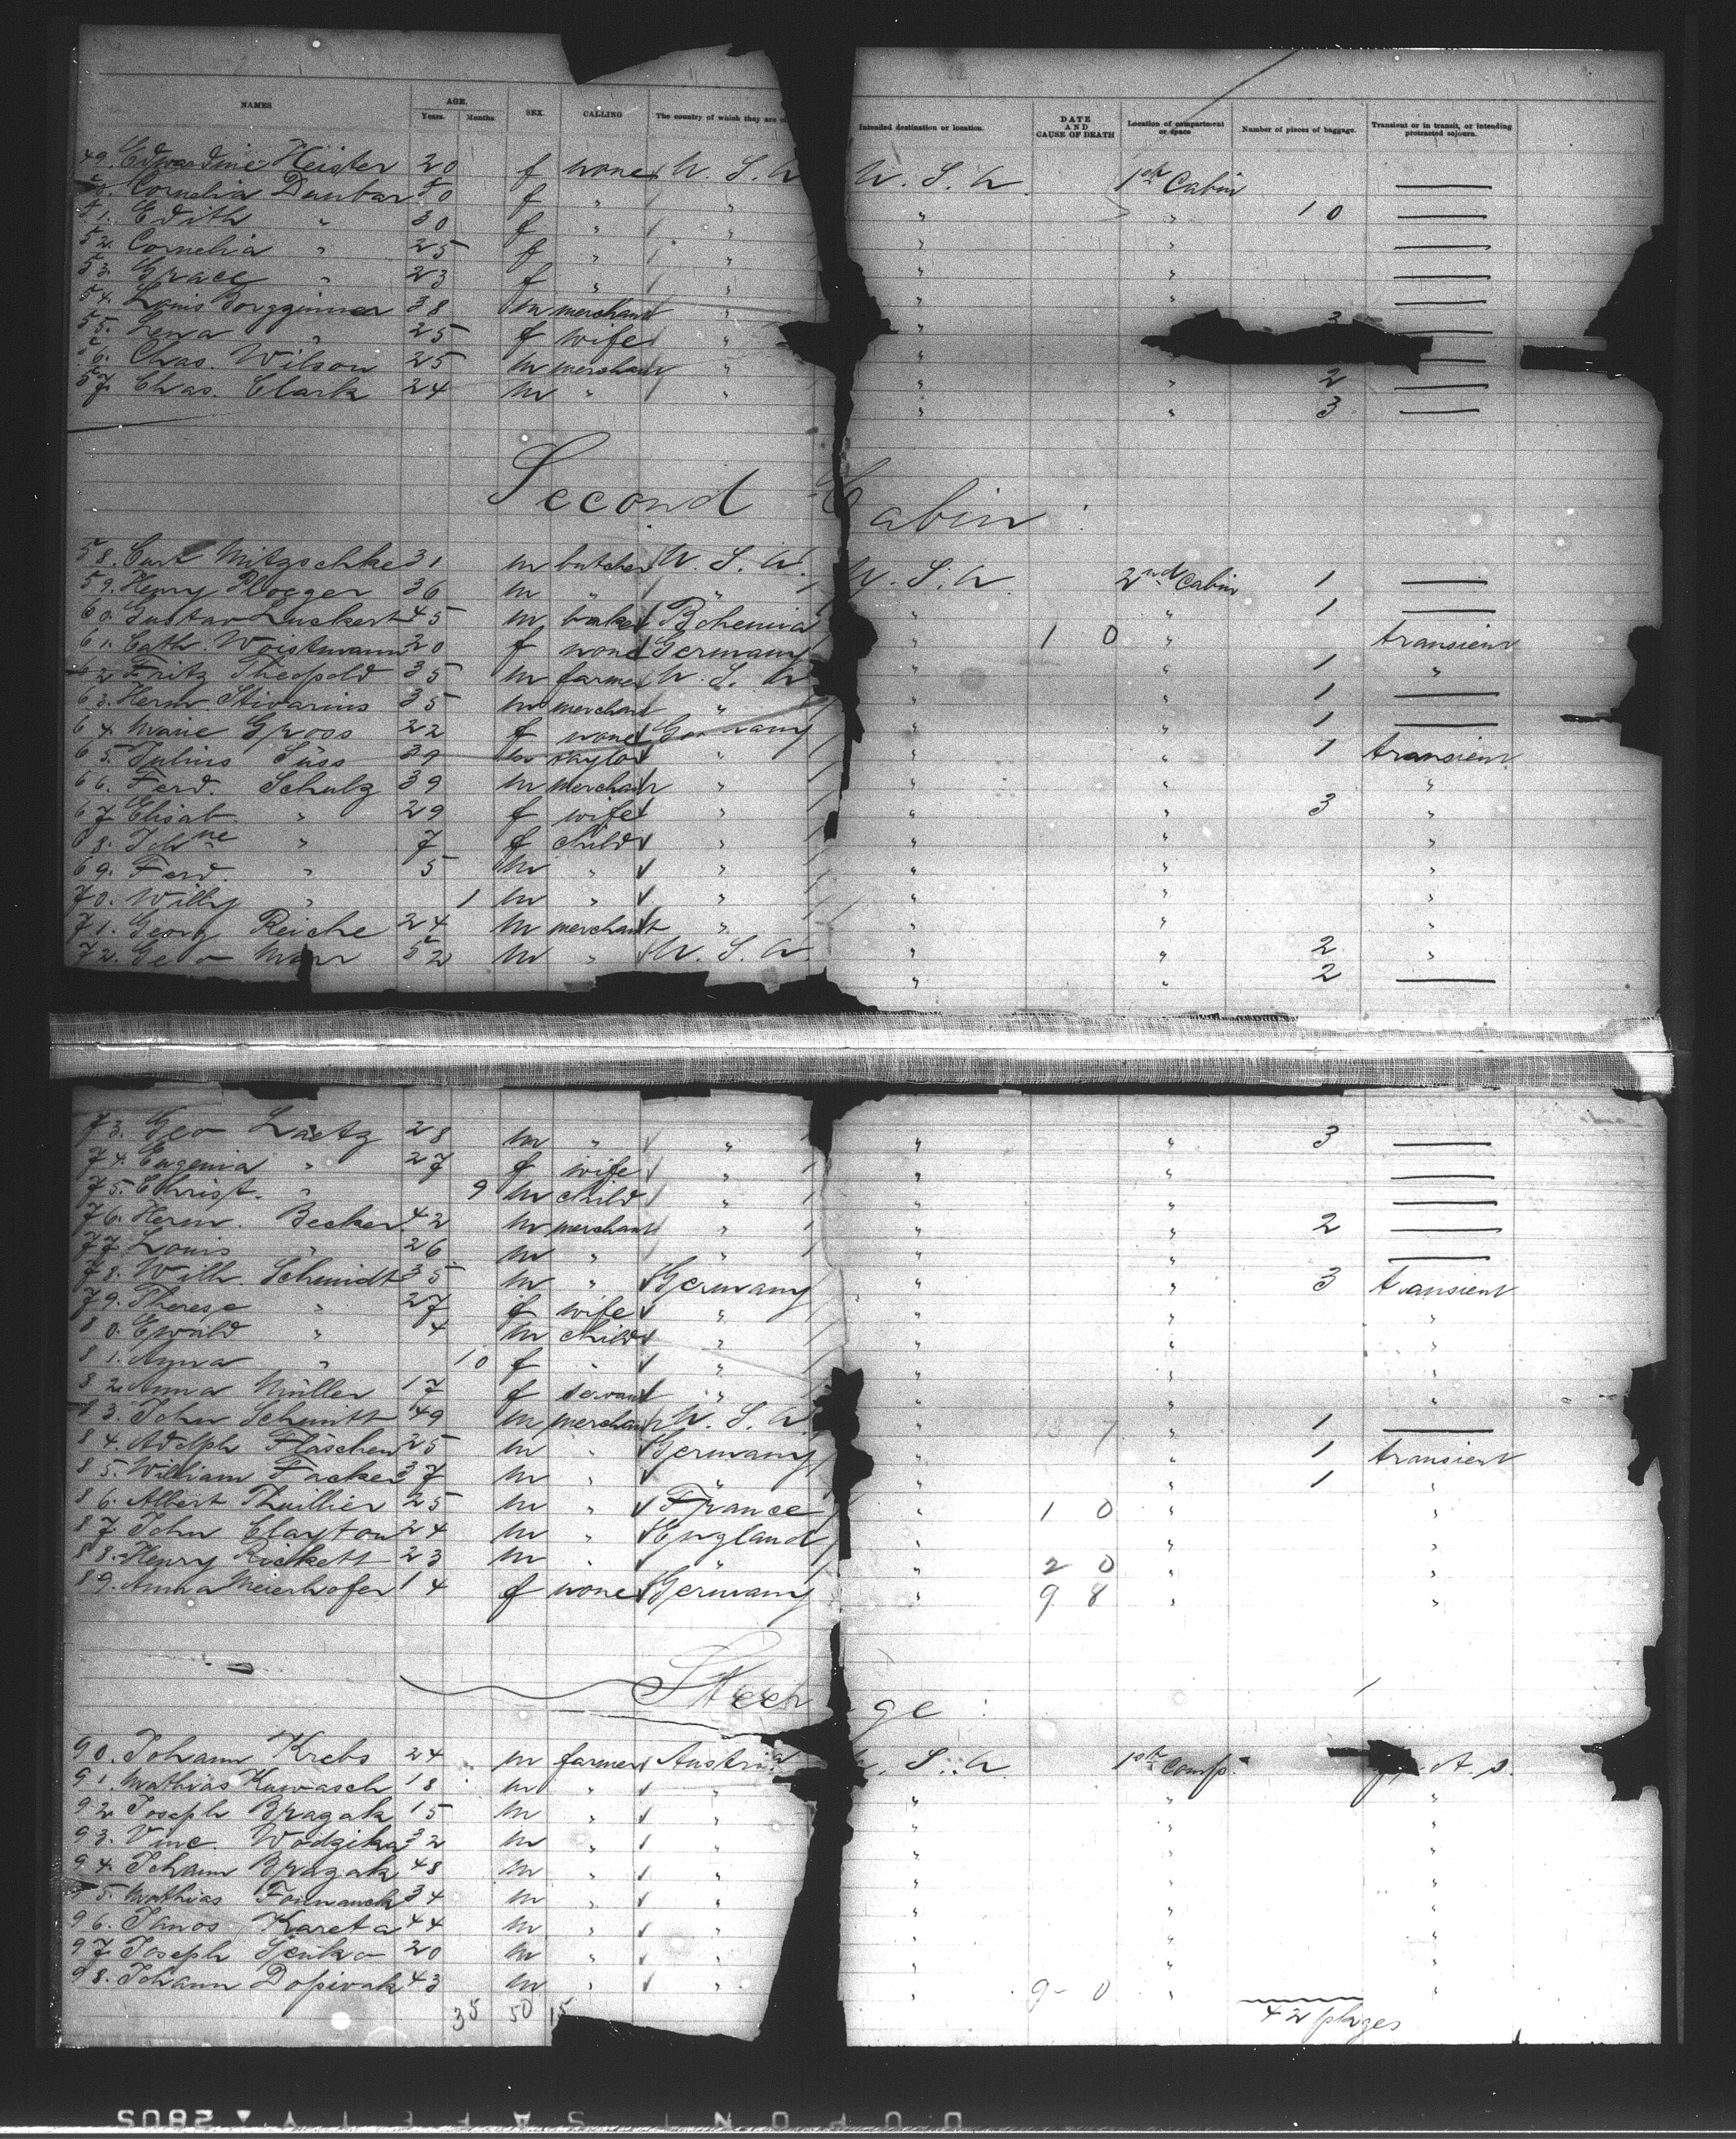 NAMES AGE. Years. Months. SEX. CALLING The country of which they are Intended destination or location. DATE AND CAUSE OF DEATH Location of compartment or space Number of pieces of baggage. Transient or in transit, or intending protracted sojourn.
49. Edwardine Heister 20 f none U. S. A U. S. A. 1st Cabin —
50. Cornelia Dunbar 50 f " " " " 10 —
51. Edith " 30 f " " " " —
52. Cornelia " 25 f " " " " —
53. Grace " 23 f " " " " —
54. Louis 38 m merchant " " —
55. Lena " 25 f wife " " —
56. Chas. Wilson 25 m merchant " " " 2 —
57. Chas. Clark 24 m " " " " 3 —
Second Cabin:
58. Curt Mitzschke 31 m butcher U. S. A. U. S. A 2nd Cabin 1 —
59. Henry Ploeger 36 m " " " " 1 —
60. Gustav Luckert 45 m baker Bohemia " 10 " transient
61. Cath. Woistmann 20 f none Germany " " 1 "
62 Fritz Theopold 35 m farmer U. S. A " " 1 —
63. Herm. Stivarius 35 m merchant " " " 1 —
64 Marie Gross 22 f none Germany " " 1 transient
65. Julius Süss 39 m taylor " " " "
66. Ferd. Schulz 39 m merchant " " " 3 "
67 Elisab. " 29 f wife " " " "
68. Johne " 7 f child " " " "
69. Ferd. " 5 m " " " " "
70. Willy " 1 m " " " " "
71. Georg Reiche 24 m merchant " " " 2 "
72. Geo Marr 52 m " U. S. A " " 2 —
73. Geo Laetz 28 m " " " " 3 —
74. Eugenia " 27 f wife " " " —
75. Christ. " 9 m child " " " —
76. Herm. Becker 42 m merchant " " " 2 —
77 Louis " 26 m " " " " —
78. Wilh. Schmidt 35 m " Germany " " 3 transient
79. Therese " 27 f wife " " " "
80. Ewald " 4 m child " " " "
81. Anna " 10 f " " " " "
82. Anna Müller 17 f servant " " " "
83. John Schmitt 49 m merchant U. S. A " " 1 —
84. Adolph Fläschen 25 m " Germany " " 1 transient
85. William Facker 37 m " " " " 1 "
86. Albert Thuillier 25 m " France " 10 " "
87. John Clayton 24 m " England " " "
88. Henry Rickett 23 m " " " 20 " "
89. Anna Meierhofer 14 f none Germany " 98 " "
Steerage:
90. Johann Krebs 24 m farmer Austria S. A. 1st Comp.
91. Mathias Kuwasch 18 m " " " " "
92 Joseph Bragak 15 m " " " " "
93. Vinc. Wodzika 32 m " " " " "
94. Johann Bragak 48 m " " " " "
95. Mathias 34 m " " " " "
96. Janos Kareta 44 m " " " " "
97 Joseph Senko 20 m " " " " "
98. Johann Dopirak 43 m " " " 9-0 " "
35 50 15 42 pkges